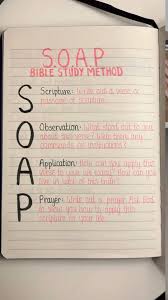 S.O.A.P
BIBLE STUDY METHOD
S
Scripture: Write out a verse or
passage of scripture.
O
Observation: What stood out to you
about this verse? Were there
any commands or instructions?
A
Application: How can you apply this
verse to your life today? How can you
live in light of this truth?
P
Prayer: Write out a prayer. Ask God
to show you how to apply this
scripture to your life.